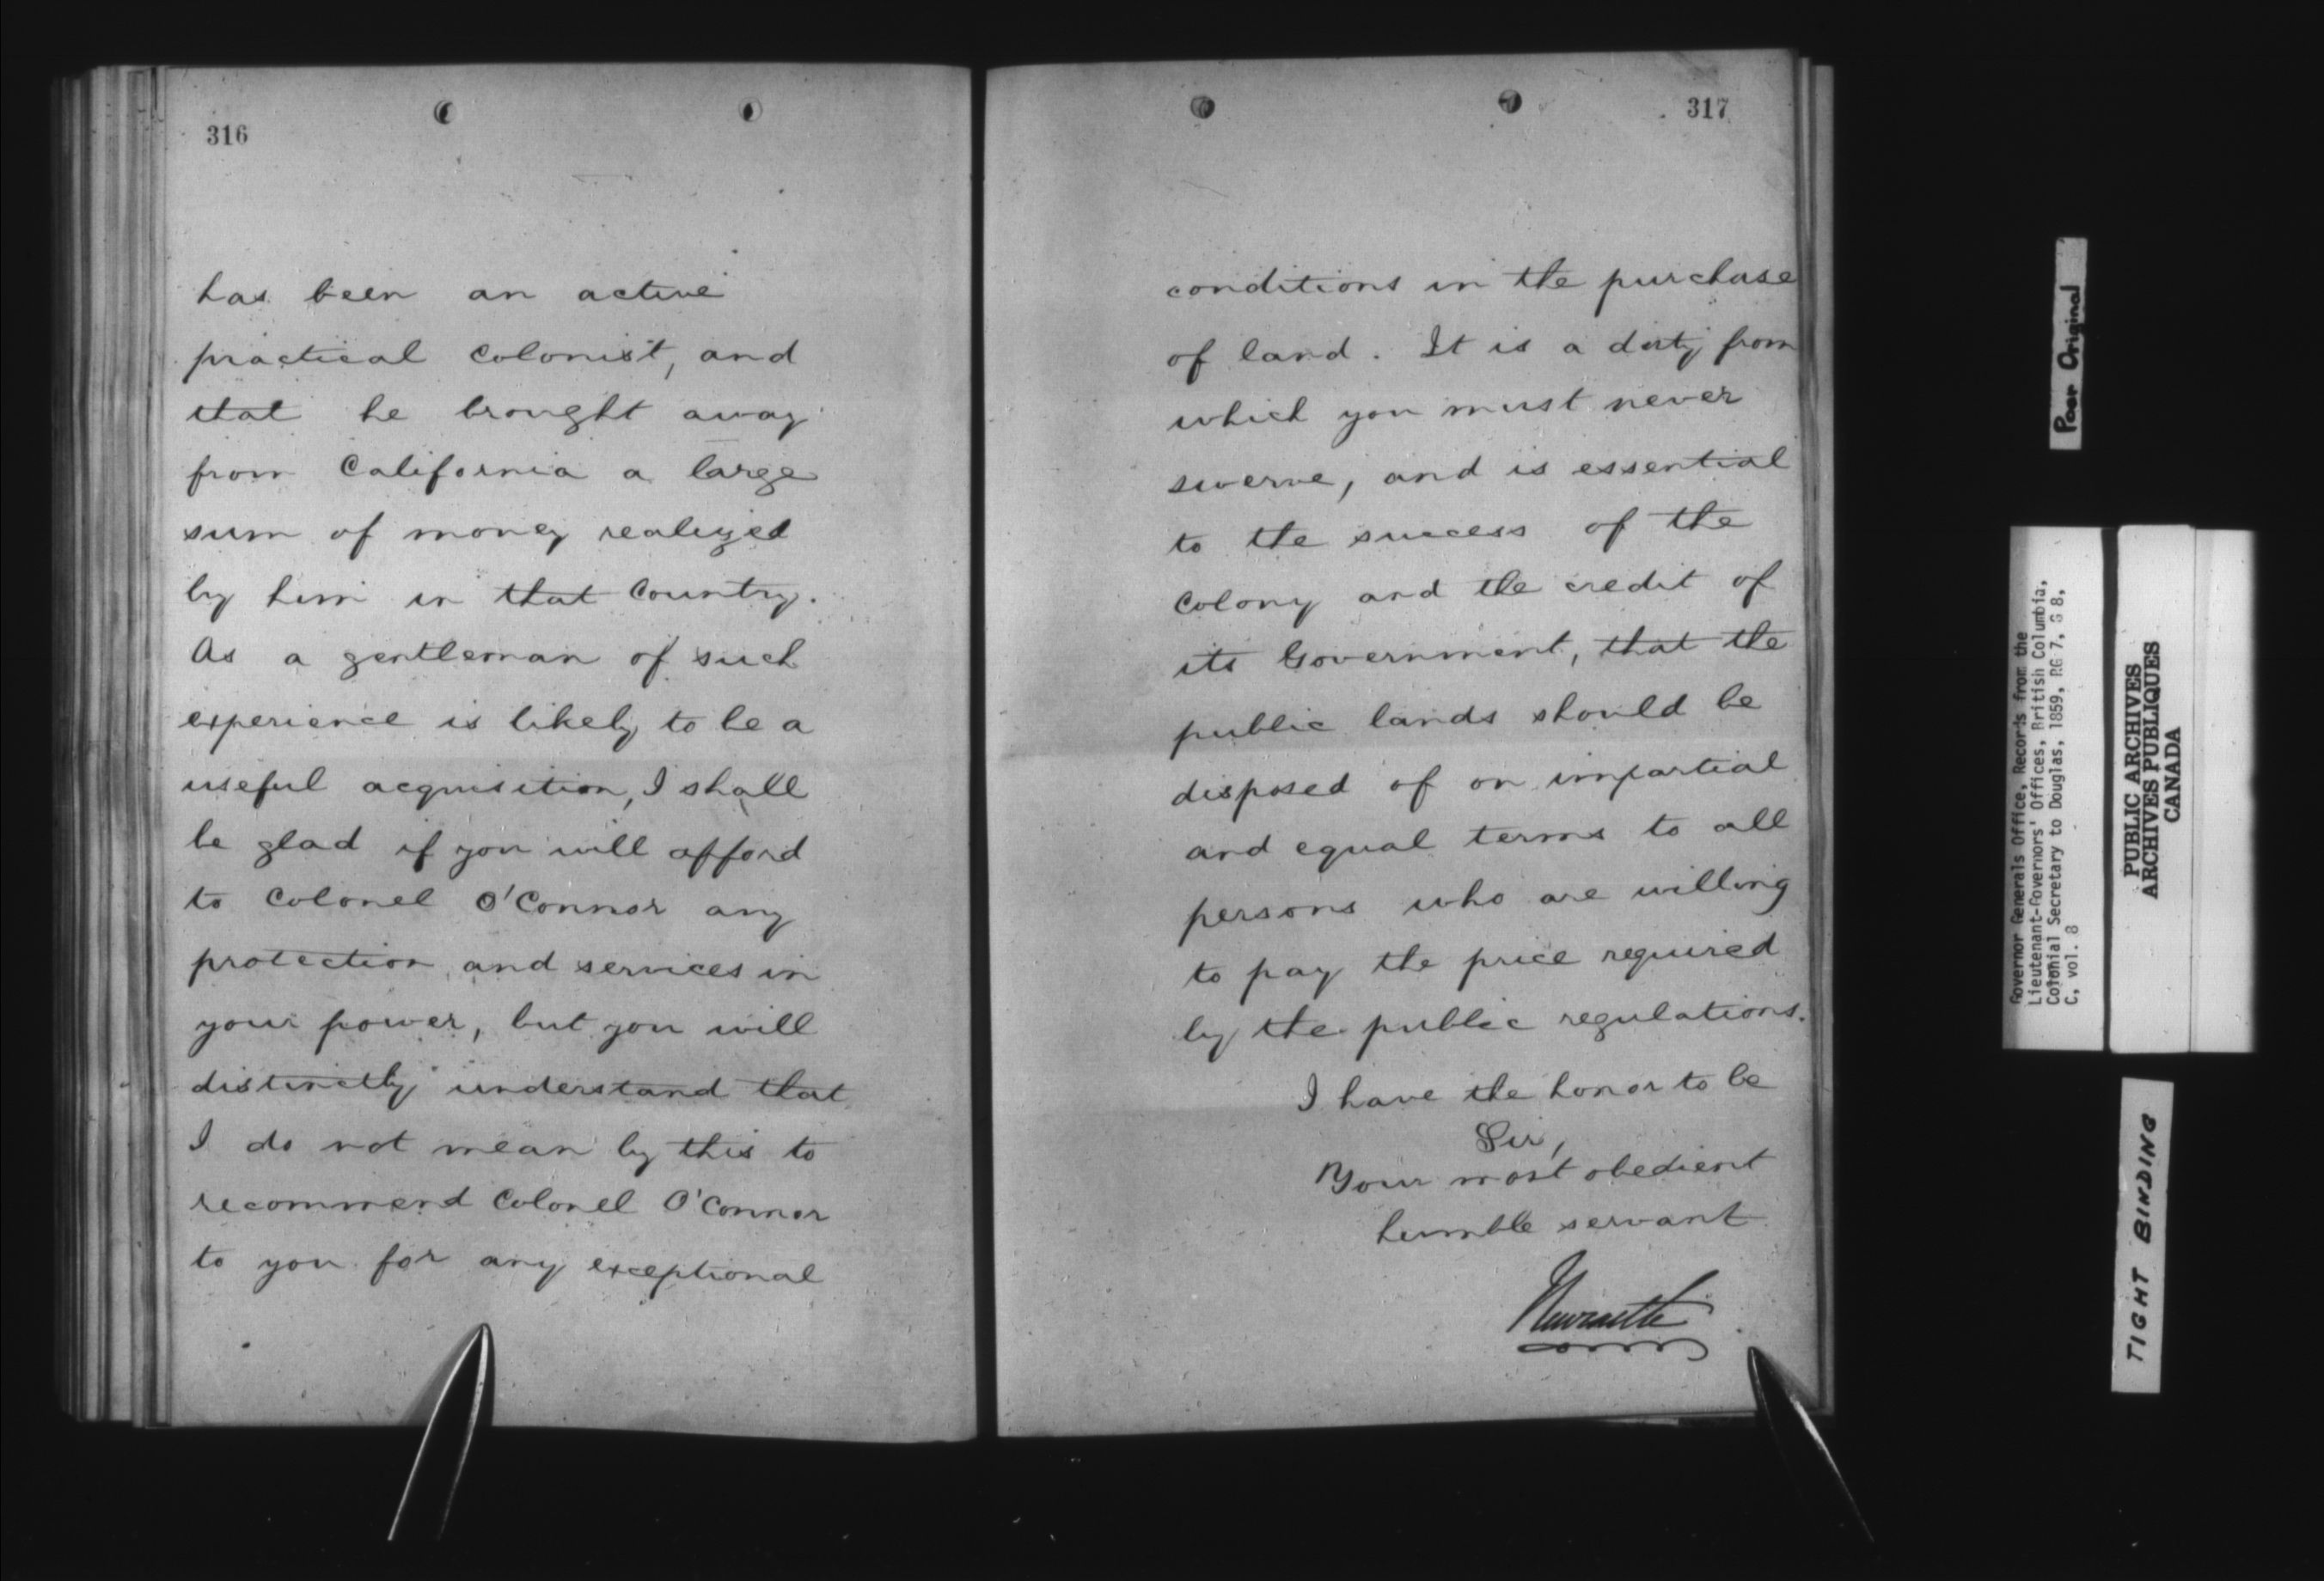 316
has been an active
practical colonist, and
that he brought away
from California a large
sum of money realized
by him in that Country.
As a gentleman of such
experience is likely to be a
useful acquisition, I shall
be glad if you will afford
to Colonel O'Connor any
protection and services in
your power, but you will
distinctly understand that
I do not mean by this to
recommend Colonel O'Connor
to you for any exceptional
317
conditions in the purchase
of land. It is a duty from
which you must never
swerve, and is essential
to the success of the
Colony and the credit of
its Government, that the
public lands should be
disposed of on impartial
and equal terms to all
persons who are willing
to pay the price required
by the public regulations.
I have the honor to be
Sir,
Your most obedient
humble servant
Newcastle
Poor Original
Governor Generals Office, Records from the
Lieutenant-Governors' Offices, British Columbia,
Colonial Secretary to Douglas, 1859, RG 7, G 8,
C, vol. 8
PUBLIC ARCHIVES
ARCHIVES PUBLIQUES
CANADA
TIGHT BINDING